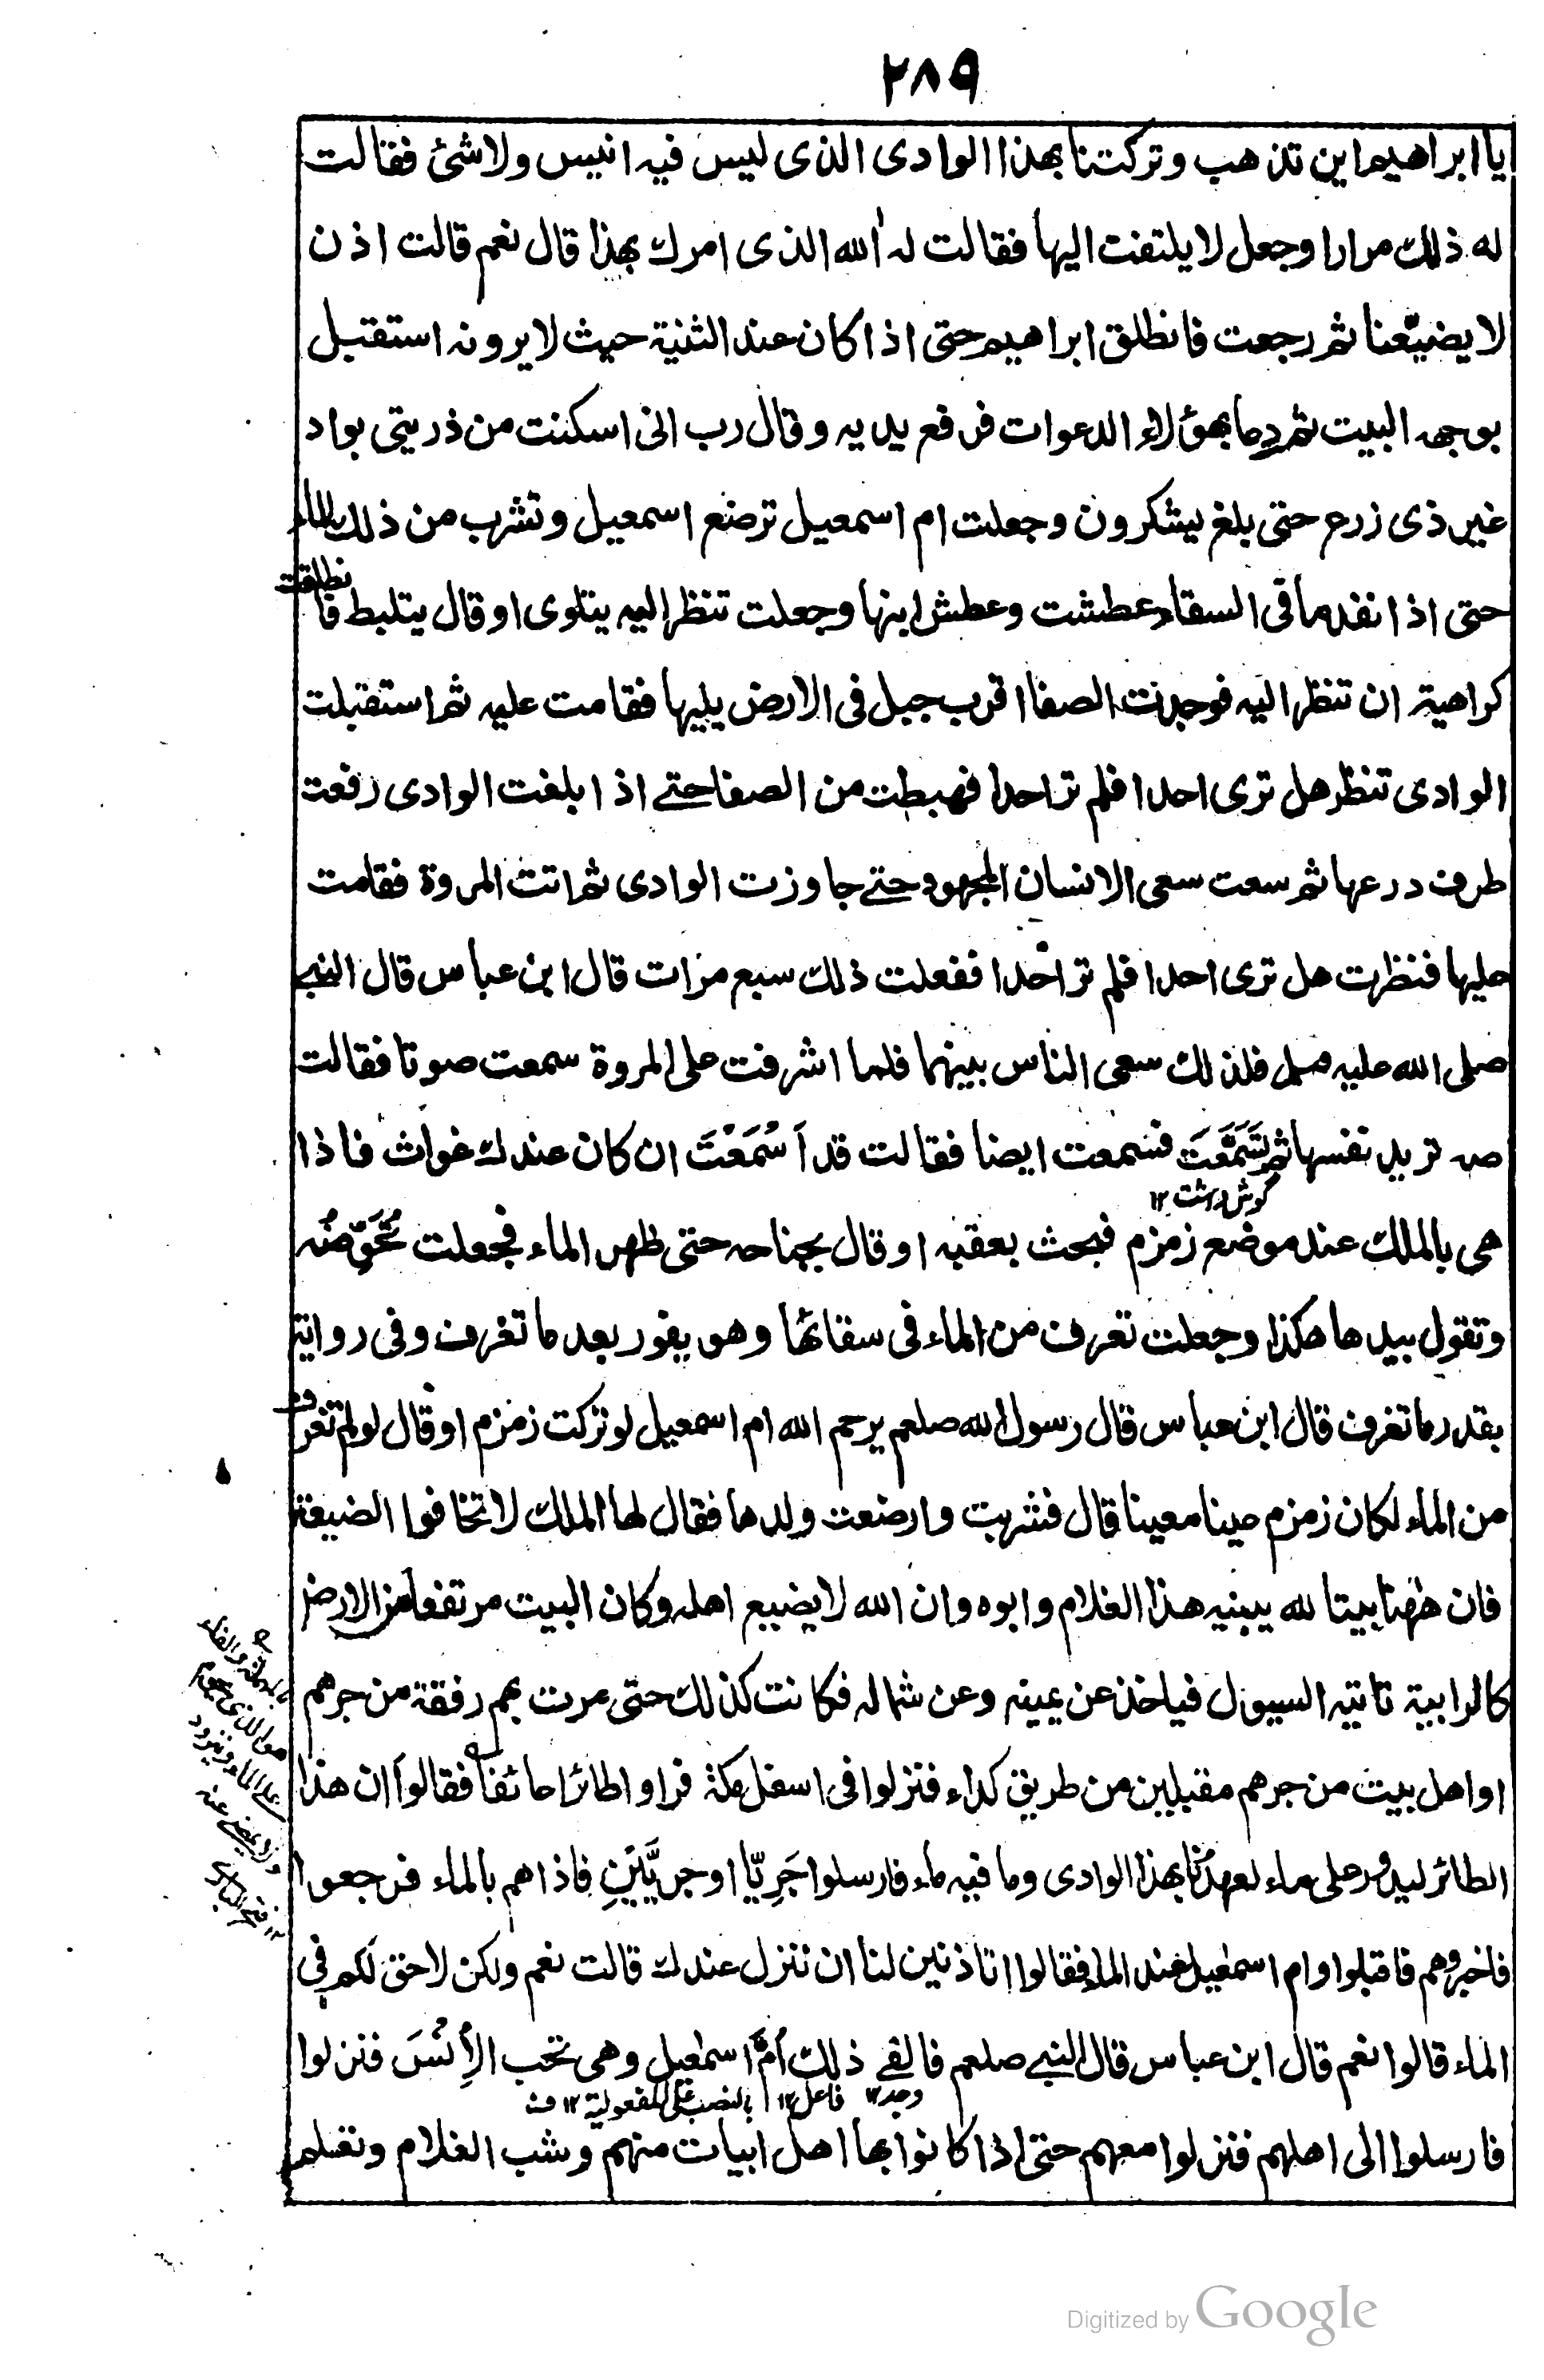 ٢٨٩
يا ابراهيم اين تذهب وتركتنا بهذا الوادى الذى ليس فيه انيس ولا شئ فقالت
له ذلك مرارا وجعل لا يلتفت اليها فقالت له آلله الذى امرك بهذا قال نعم قالت اذن
لا يضيّعنا ثم رجعت فانطلق ابراهيم حتى اذا كان عند الثنية حيث لا يرونه استقبل
بوجهه البيت ثم دعا بهؤلاء الدعوات فرفع يديه وقال رب انى اسكنت من ذريتى بواد
غير ذى زرع حتى بلغ يشكرون وجعلت ام اسمعيل ترضع اسمعيل وتشرب من ذلك الماء
حتى اذا نفد ما فى السقاء عطشت وعطش ابنها وجعلت تنظر اليه يتلوى او قال يتلبط فانطلقت
كراهية ان تنظر اليه فوجدت الصفا اقرب جبل فى الارض يليها فقامت عليه ثم استقبلت
الوادى تنظر هل ترى احدا فلم تر احدا فهبطت من الصفا حتے اذا بلغت الوادى رفعت
طرف درعها ثم سعت سعى الانسان المجهود حتے جاوزت الوادى ثم اتت المروة فقامت
عليها فنظرت هل ترى احدا فلم تر احدا ففعلت ذلك سبع مرات قال ابن عباس قال النبے
صلى الله عليه وسلم فلذلك سعى الناس بينهما فلما اشرفت على المروة سمعت صوتا فقالت
صه تريد نفسها ثم تَسَمَّعَتَ فسمعت ايضا فقالت قد اَسْمَعْتَ ان كان عندك غواث فاذا
گوش داشت ١٢
هى بالملك عند موضع زمزم فبحث بعقبه او قال بجناحه حتى ظهر الماء فجعلت تُحَوِّضُه
وتقول بيدها هكذا وجعلت تغرف من الماء فى سقائها وهو يفور بعد ما تغرف وفى رواية
بقدر ما تغرف قال ابن عباس قال رسول الله صلعم يرحم الله ام اسمعيل لو تركت زمزم او قال لو لم تغرف
من الماء لكان زمزم عينا معينا قال فشربت وارضعت ولدها فقال لها الملك لا تخافوا الضيعة
فان ههنا بيتا لله يبنيه هذا الغلام وابوه وان الله لا يضيع اهله وكان البيت مرتفعا من الارض
كالرابية تاتيه السيول فياخذ عن يمينه وعن شماله فكانت كذلك حتى مرت بهم رفقة من جرهم
او اهل بيت من جرهم مقبلين من طريق كداء فنزلوا فى اسفل مكة فراوا طائرا عائفا فقالوا ان هذا
الطائر ليدور على ماء لعهدنا بهذا الوادى وما فيه ماء فارسلوا جَرِيّا او جريَّيْنِ فاذا هم بالماء فرجعوا
فاخبروهم فاقبلوا وام اسمٰعيل عند الماء فقالوا اتاذنين لنا ان ننزل عندك قالت نعم ولكن لا حق لكم فى
الماء قالوا نعم قال ابن عباس قال النبے صلعم فالفے ذلك اُمَّ اسمٰعيل وهى تحب الاِنُسَ فنزلوا
وجد ١٢ فاعل ١٢ بالنصب على المفعولية ١٢ ف
فارسلوا الى اهلهم فنزلوا معهم حتى اذا كانوا بها اهل ابيات منهم وشب الغلام وتعلم
بالمهملة والفاء
هو الذى يحوم
على الماء ويتردد
ولا يمضے عنه
١٢ فتح البارى
Digitized by Google